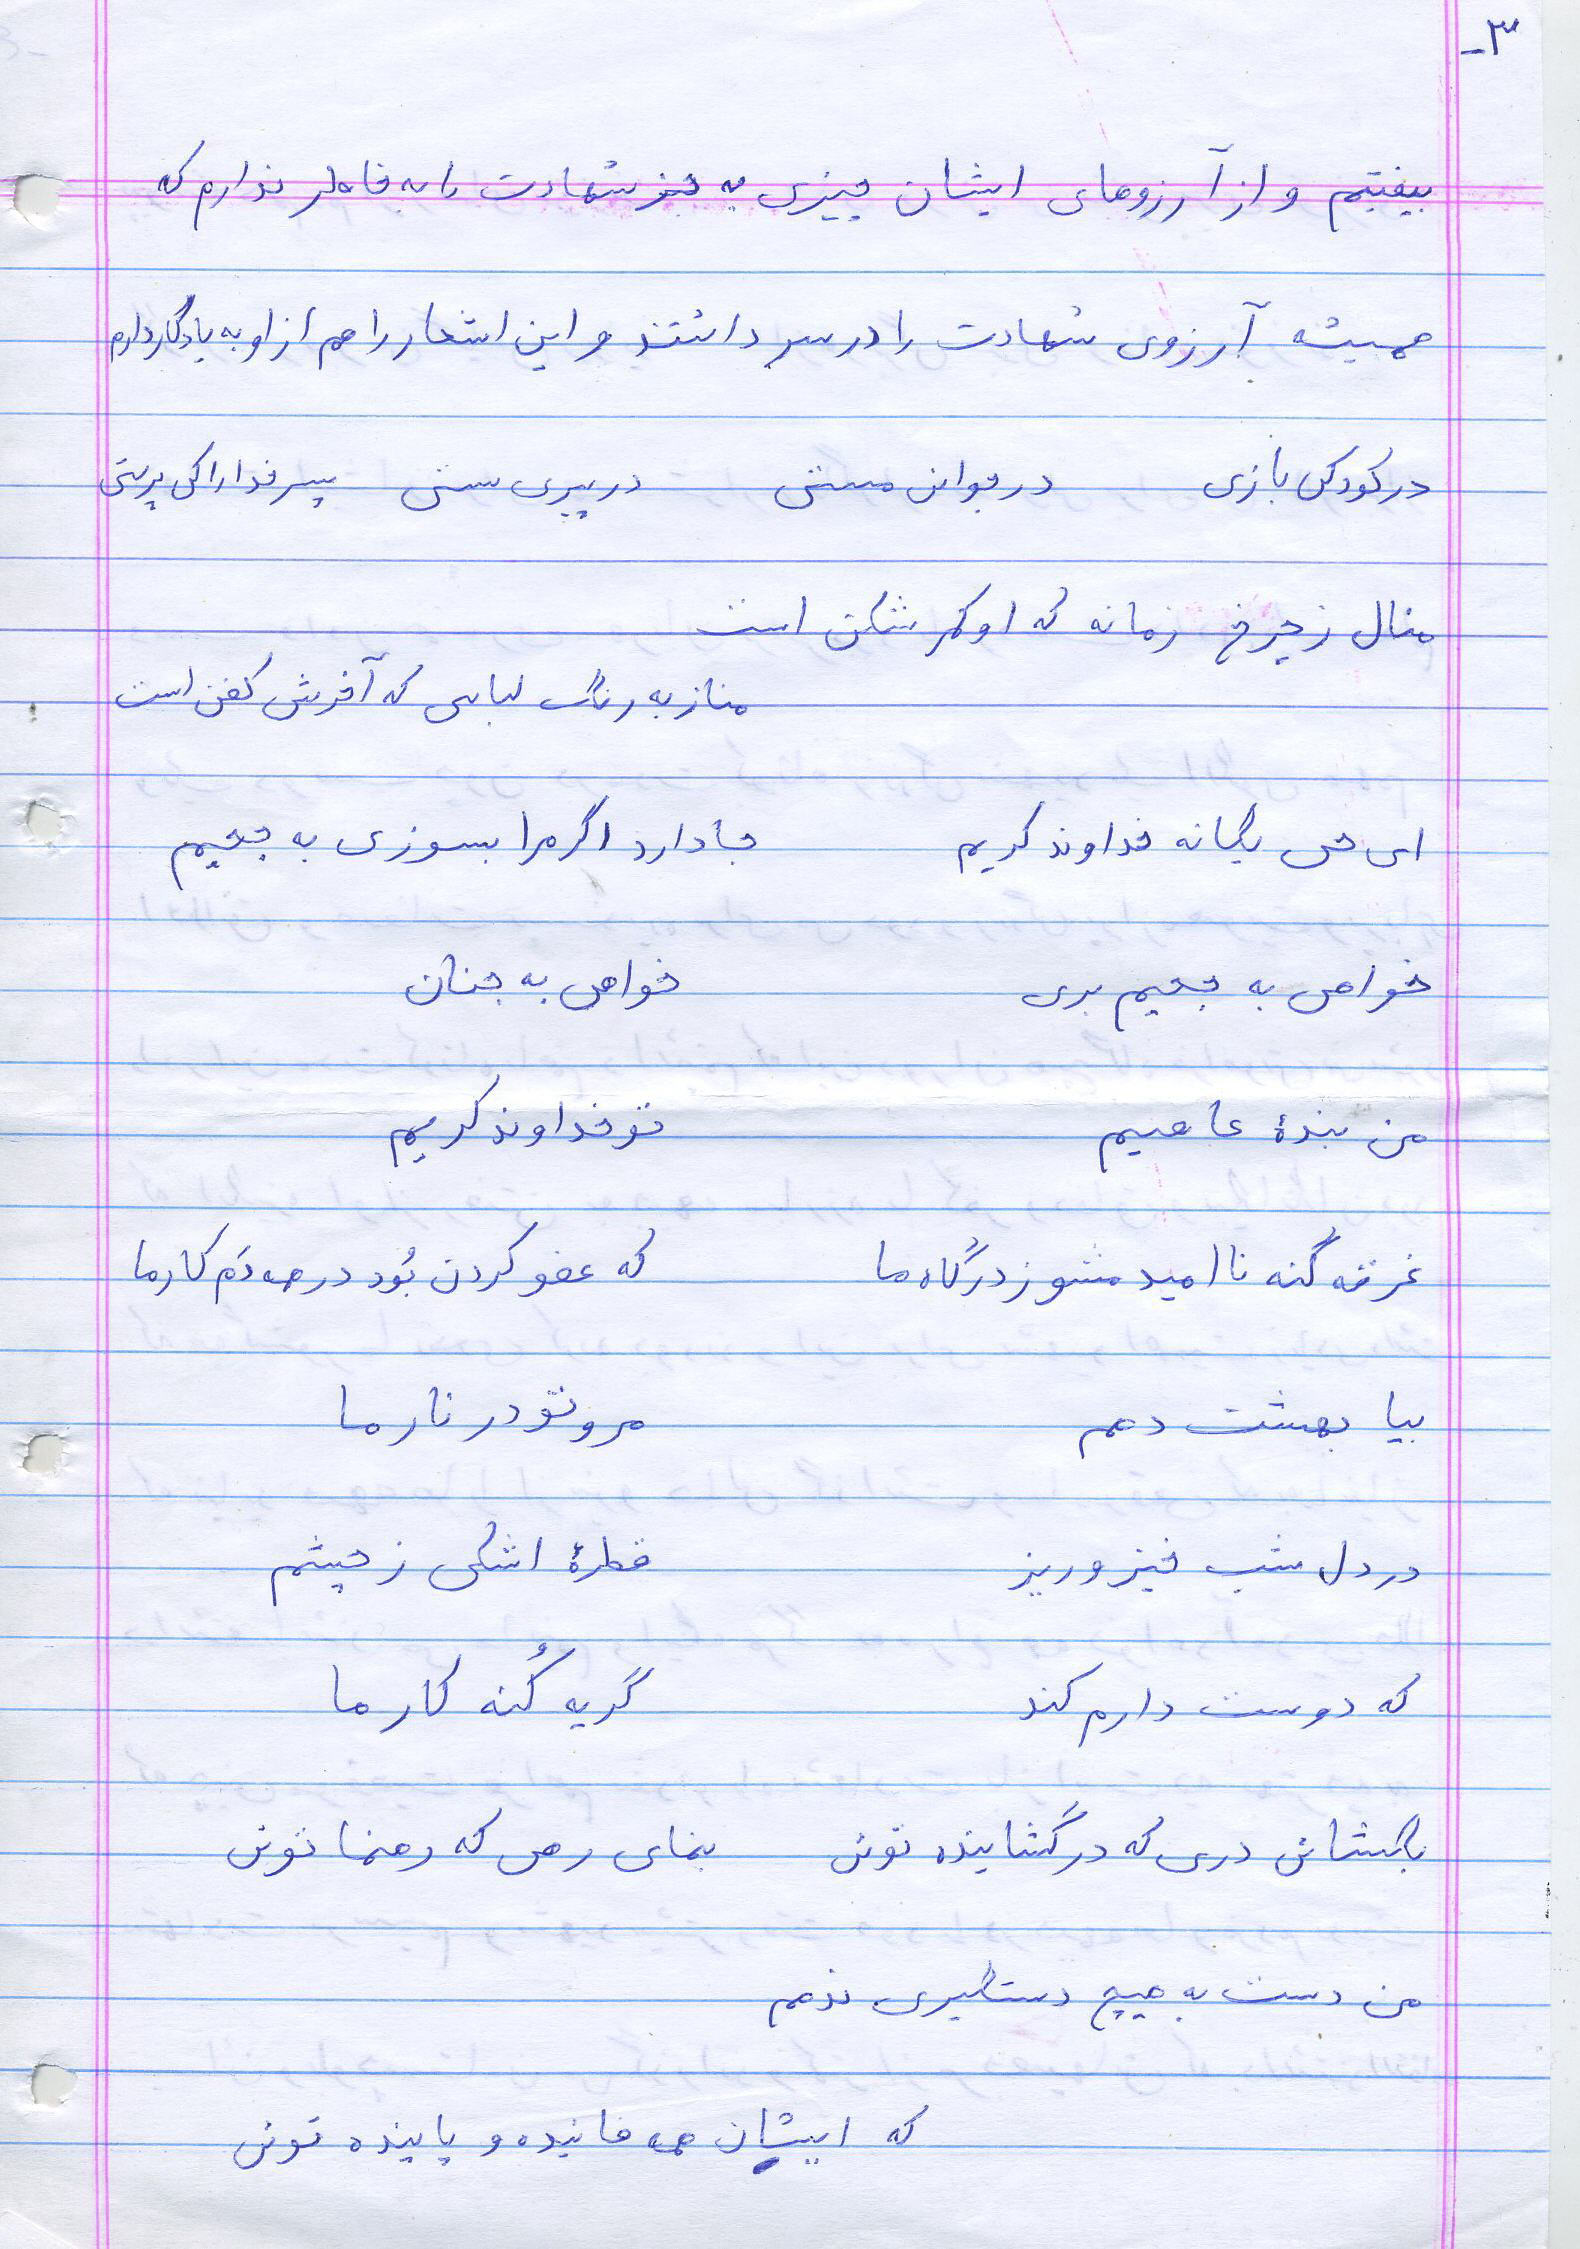 ۳-
بیفتیم و از آرزوهای ایشان چیزی به جز شهادت را به خاطر ندارم که
همیشه آرزوی شهادت را در سر داشتند و این اشعار را هم از او به یادگار دارم
در کودکی بازی در جوانی مستی در پیری سستی پس خدا را کی پرستی
منال ز چرخ زمانه که او کمر شکن است
مناز به رنگ لباسی که آخرش کفن است
ای حی یگانه خداوند کریم جا دارد اگر مرا بسوزی به جحیم
خواهی به جحیم بری خواهی به جنان
من بندۀ عاصیم تو خداوند کریم
غرقه گنه ناامید مشو ز درگاه ما که عفو کردن بُود در همه دَم کار ما
بیا بهشت دهم مرو تو در نار ما
در دل شب خیز و ریز قطرۀ اشکی ز چشم
که دوست دارم کند گریه کُنه کار ما
بگشائی دری که در گشاینده توئی بنمای رهی که رهنما توئی
من دست به هیچ دستگیری ندهم
که ایشان همه فانیده و پاینده توئی